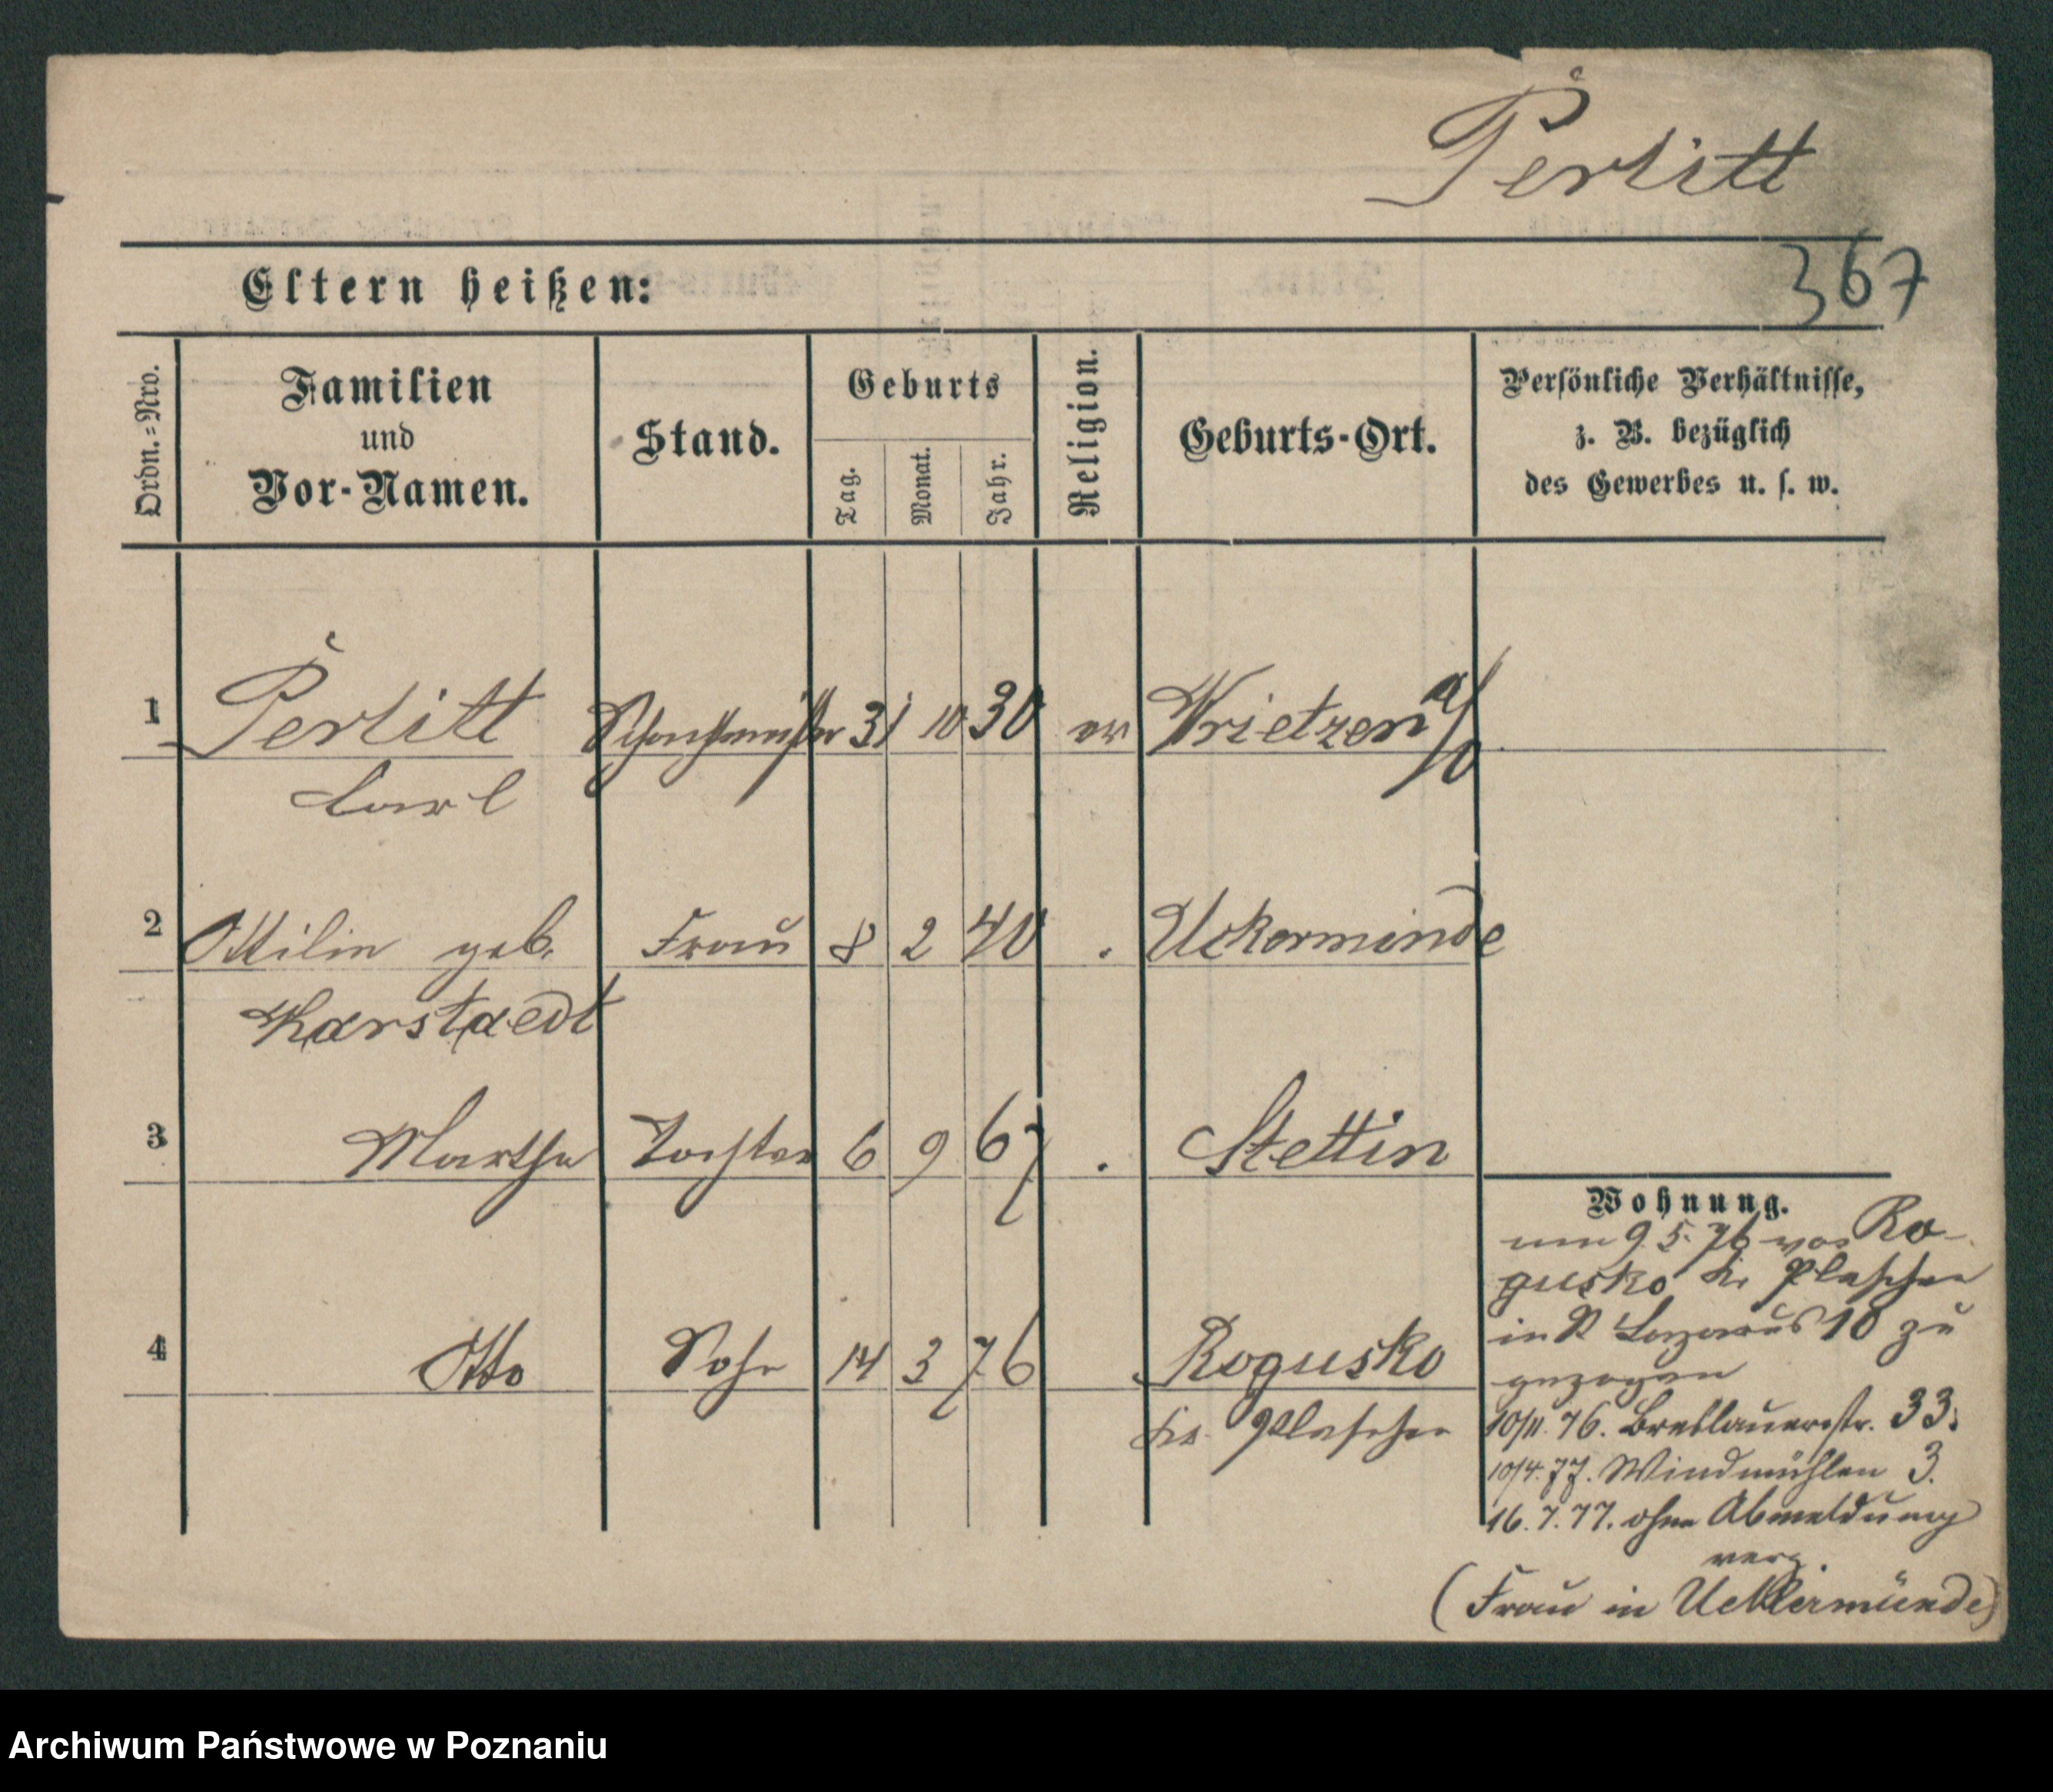 Perlitt
367
Eltern heißen:
Ordn.=Nro.
Familien
und
Vor-Namen.
Stand.
Geburts
Tag.
Monat.
Jahr.
Religion.
Geburts-Ort.
Persönliche Verhältnisse,
z. B. bezüglich
des Gewerbes u. s. w.
1 Perlitt 31 10 30 ev Wrietzen a/O
Carl
2 Ottilie geb. Frau 8 2 40 . Uckerminde
Karstaedt
3 Martha Tochter 6 9 67 . Stettin
4 Otto Sohn 14 3 76 Rogusko
Kr. Pleschen
Wohnung.
9. 5. 76 von Ro-
gusko Kr Pleschen
in St Lazarus 10 zu
gezogen
10/11. 76. Breslauerstr. 33.
10/4. 77. Windmühlen 3.
16. 7. 77. ohne Abmeldung
verz.
(Frau in Ueckermünde)
Archiwum Państwowe w Poznaniu